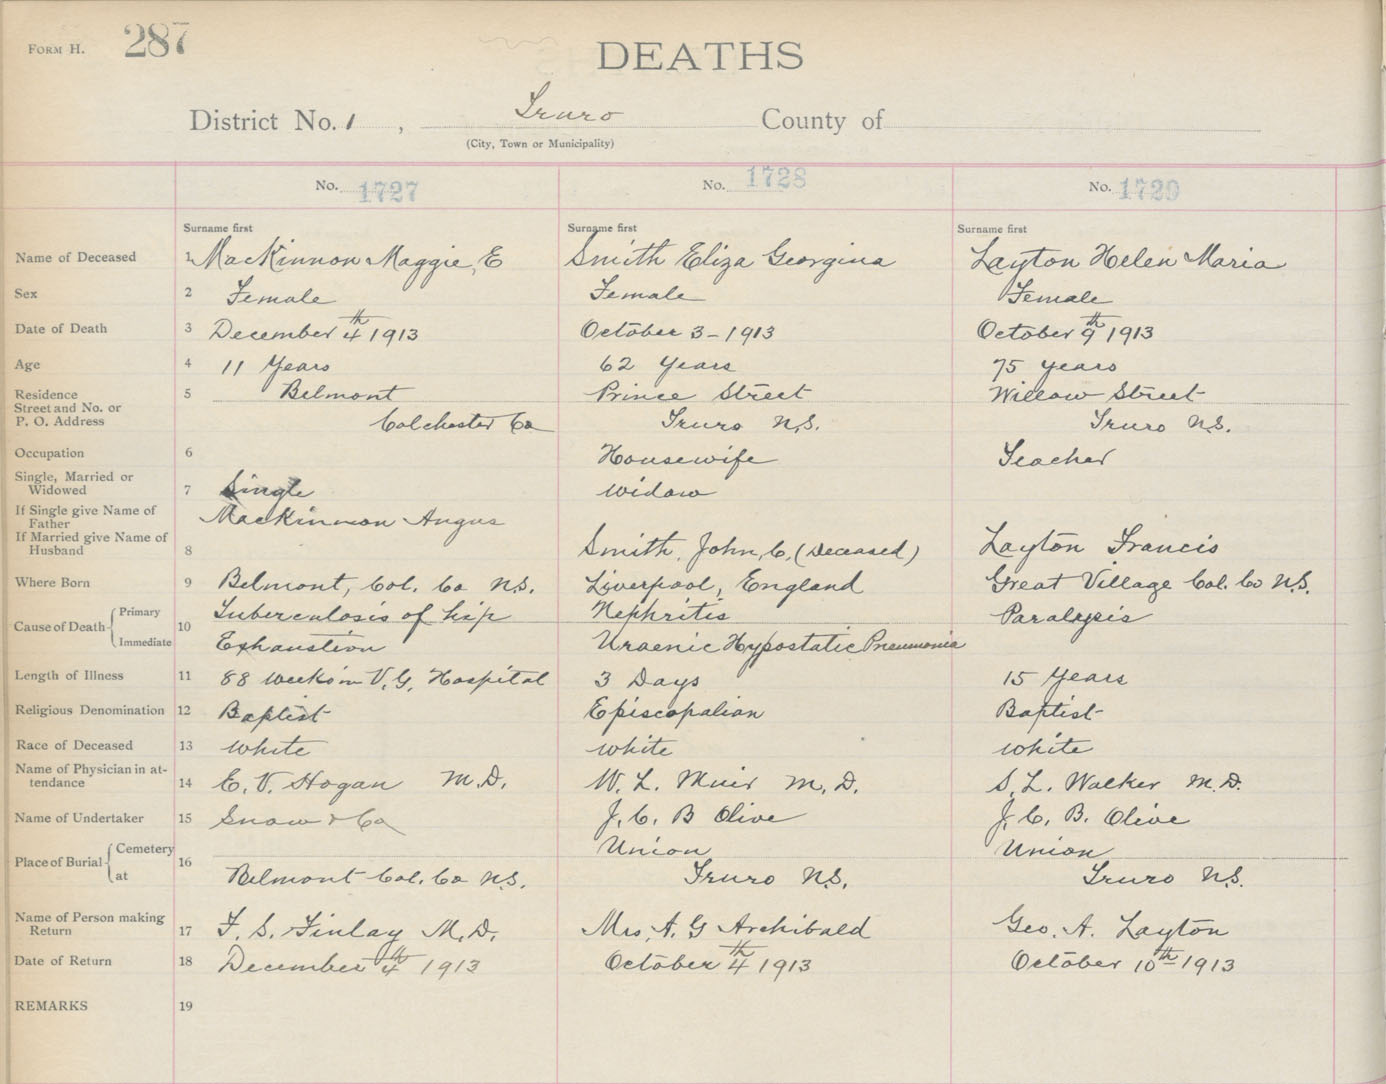 FORM H. 287
DEATHS
District No. 1, Truro County of
(City, Town or Municipality)
No. 1727 No. 1728 No. 1729
Surname first Surname first Surname first
Name of Deceased 1 MacKinnon Maggie, E Smith Eliza Georgina Layton Helen Maria
Sex 2 Female Female Female
Date of Death 3 December 4th 1913 October 3 - 1913 October 9th 1913
Age 4 11 Years 62 Years 75 years
Residence 5 Belmont Prince Street Willow Street
Street and No. or
P. O. Address Colchester Co Truro N.S. Truro N.S.
Occupation 6 Housewife Teacher
Single, Married or
Widowed 7 Single widow
If Single give Name of
Father MacKinnon Angus
If Married give Name of
Husband 8 Smith, John, C. (Deceased) Layton Francis
Where Born 9 Belmont, Col. Co N.S. Liverpool, England Great Village Col. Co N.S.
Cause of Death 10 Primary Tuberculosis of hip Nephritis Paralysis
Immediate Exhaustion Uraenic Hypostatic Pneumonia
Length of Illness 11 88 weeks in V.G. Hospital 3 Days 15 Years
Religious Denomination 12 Baptist Episcopalian Baptist
Race of Deceased 13 white white white
Name of Physician in at-
tendance 14 E. V. Hogan M.D. W. L. Muir M.D. S. L. Walker M.D.
Name of Undertaker 15 Snow & Co J. C. B Olive J. C. B. Olive
Place of Burial 16 Cemetery Union Union
at Belmont Col. Co N.S. Truro N.S. Truro N.S.
Name of Person making
Return 17 F. S. Finlay M.D. Mrs. A. G Archibald Geo. A. Layton
Date of Return 18 December 4th 1913 October 4th 1913 October 10th 1913
REMARKS 19